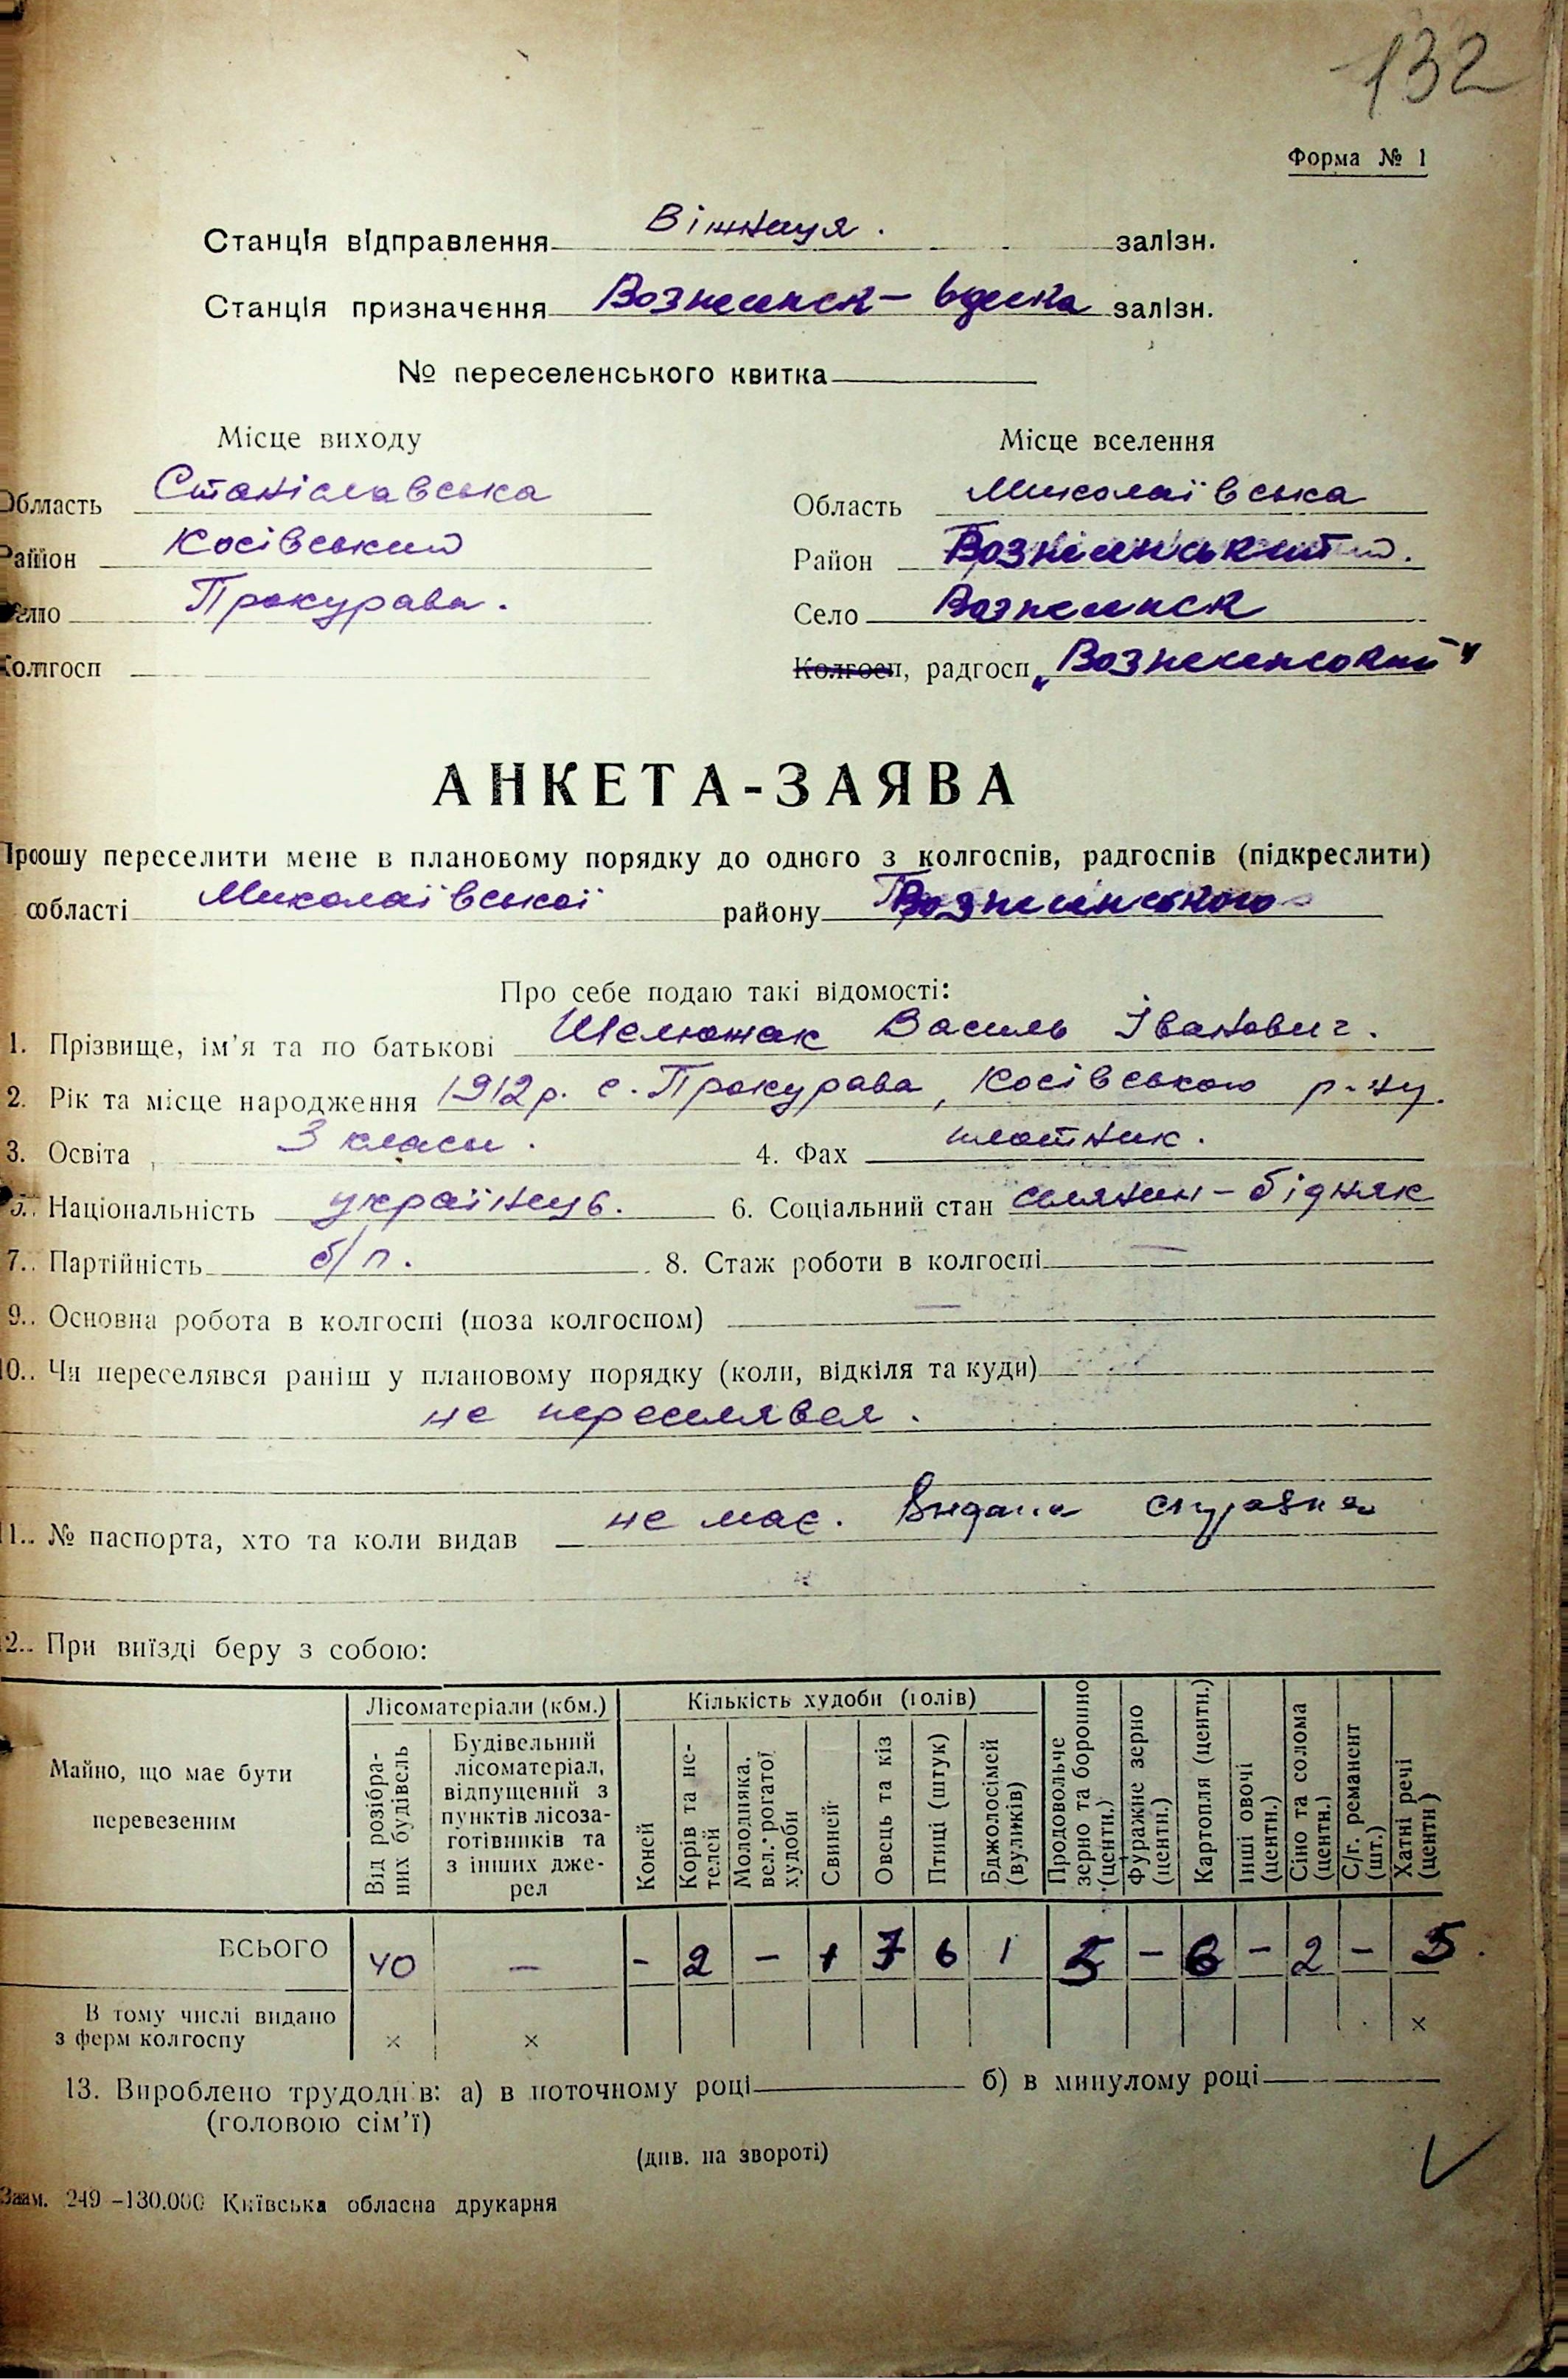 132
Форма № 1
Станція відправлення Віжниця. залізн.
Станція призначення Вознесенск - Одеська залізн.
№ переселенського квитка
Місце виходу
Місце вселення
Область Станіславська
Область Миколаївська
Район Косівський
Район Вознесенський.
Село Прокурава.
Село Вознесенск
Колгосп
Колгосп, радгосп „Вознесенський"
АНКЕТА-ЗАЯВА
Прошу переселити мене в плановому порядку до одного з колгоспів, радгоспів (підкреслити)
області Миколаївської району Вознесенського
Про себе подаю такі відомості:
1. Прізвище, ім'я та по батькові Шелюжак Василь Іванович.
2. Рік та місце народження 1912 р. с. Прокурава, Косівського р-ну.
3. Освіта 3 класи. 4. Фах плотник.
5. Національність українець. 6. Соціальний стан селянин - бідняк
7. Партійність б/п. 8. Стаж роботи в колгоспі —
9. Основна робота в колгоспі (поза колгоспом) —
10. Чи переселявся раніш у плановому порядку (коли, відкіля та куди)
не переселявся.
11. № паспорта, хто та коли видав не має. Видана справка
12. При виїзді беру з собою:
Майно, що має бути перевезеним
Лісоматеріали (кбм.)
Від розібраних будівель
Будівельний лісоматеріал, відпущений з пунктів лісозаготівників та з інших джерел
Кількість худоби (голів)
Коней
Корів та нетелей
Молодняка, вел. рогатої худоби
Свиней
Овець та кіз
Птиці (штук)
Бджолосімей (вуликів)
Продовольче зерно та борошно (центн.)
Фуражне зерно (центн.)
Картопля (центн.)
Інші овочі (центн.)
Сіно та солома (центн.)
С/г. реманент (шт.)
Хатні речі (центн)
ВСЬОГО 40 — - 2 - 1 7 6 1 5 - 6 - 2 - 5.
В тому числі видано
з ферм колгоспу × × ×
13. Вироблено трудоднів: а) в поточному році б) в минулому році
(головою сім'ї)
(див. на звороті)
Зам. 249 -130.000 Київська обласна друкарня